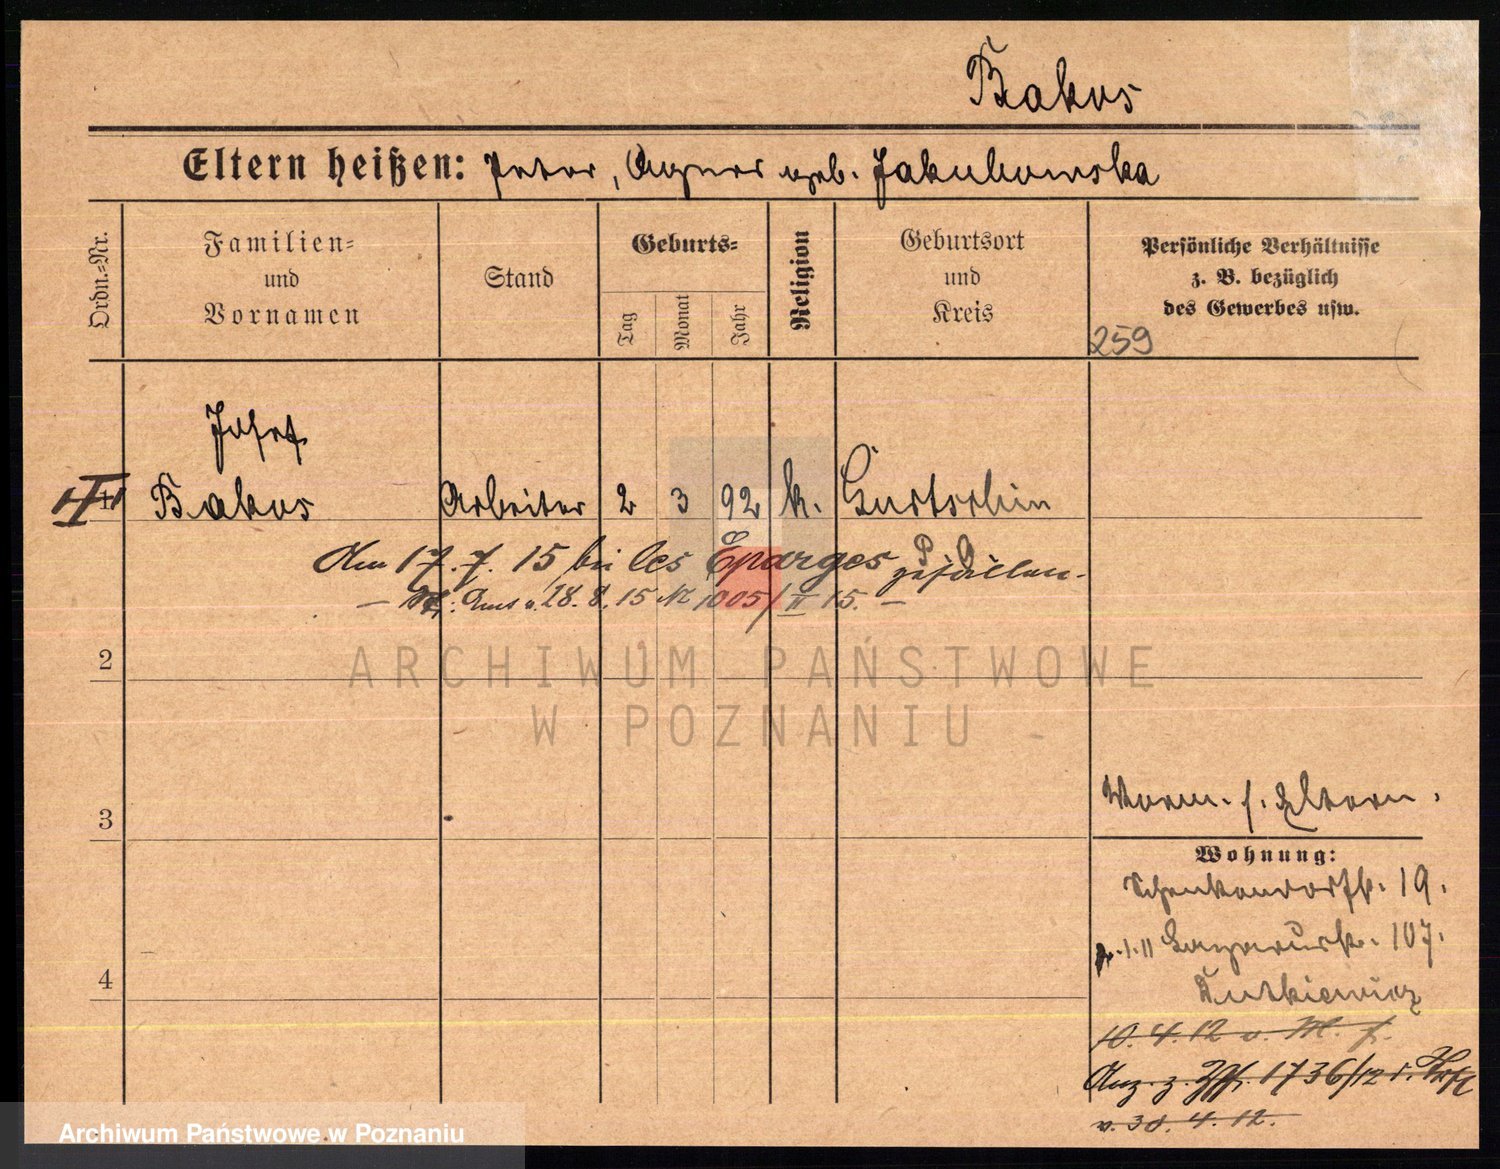 Bakos
Eltern heißen: Peter, Agnes geb. Jakubowska
Ordn.=Nr.
Familien=
und
Vornamen
Stand
Geburts=
Tag
Monat
Jahr
Religion
Geburtsort
und
Kreis
Persönliche Verhältnisse
z. B. bezüglich
des Gewerbes usw.
259
Josef
1 Bakos Arbeiter 2 3 92 k. Gurtschin
P. O.
Am 17. 7. 15 bei les Eparges gefallen.
28. 8. 15 № 1005/II 15. –
2
ARCHIWUM PAŃSTWOWE
W POZNANIU
3
Worm. s. Eltern.
Wohnung:
Schenkendorfstr. 19.
1.11 Lazarusstr. 107.
Rutkiewicz
4
10. 4. 12 v. M. f.
Anz. z. 1736/12
v. 30. 4. 12.
Archiwum Państwowe w Poznaniu